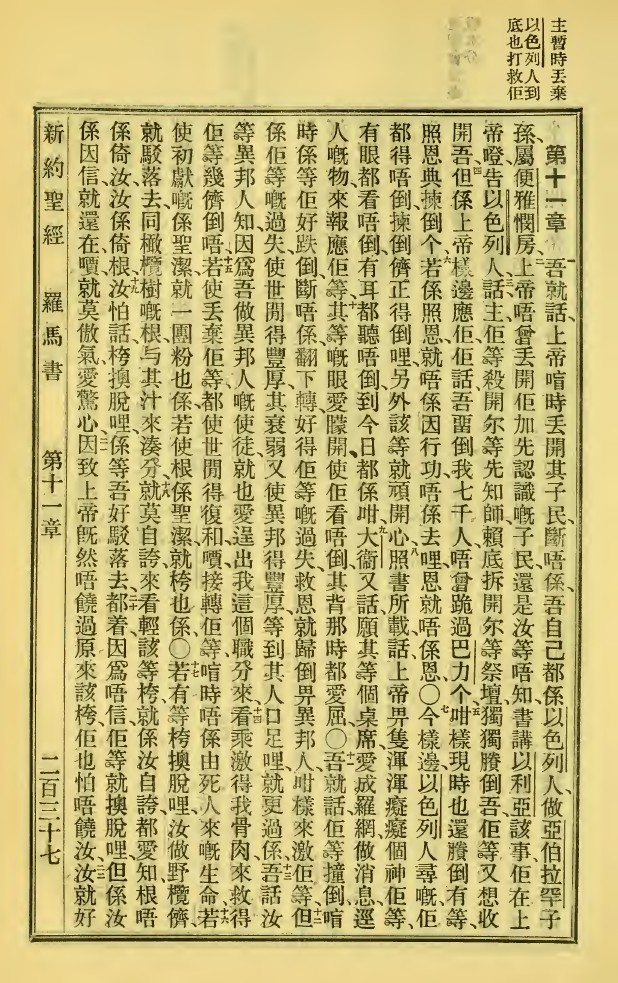 主暫時丟棄
以色列人到
底也打救佢
第十一章 一吾就話、上帝喑時丟開其子民、斷唔係、吾自己都係以色列人、做亞伯拉罕子
孫、屬便雅憫房、二上帝唔曾丟開佢加先認識嘅子民、還是汝等唔知、書講以利亞該事、佢在上
帝嶝告以色列人、三話主、佢等殺開尔等先知師、賴底拆開尔等祭壇、獨獨賸倒吾、佢等又想收
開吾、四但係上帝樣邊應佢、佢話吾畱倒我七千人、唔曾跪過巴力个、五咁樣現時也還賸倒有等、
照恩典揀倒个、六若係照恩、就唔係因行功、唔係去哩、恩就唔係恩〇七今樣邊、以色列人尋嘅、佢
都得唔倒、揀倒儕正得倒哩、另外該等就頑開心、八照書所載話、上帝畀隻渾渾癡癡個神佢等、
有眼都看唔倒、有耳都聽唔倒、到今日都係咁、九大衞又話、願其等個桌席、愛成羅網、做消息、逕
人嘅物、來報應佢等、十其等嘅眼愛矇開、使佢看唔倒、其背那時都愛屈〇十一吾就話、佢等撞倒、喑
時係等佢好跌倒、斷唔係、翻下轉好得佢等嘅過失、救恩就歸倒畀異邦人、咁樣來激佢等、十二但
係佢等嘅過失、使世間得豐厚、其衰弱、又使異邦得豐厚、等到其人口足哩、就更過係、十三吾話汝
等異邦人知、因爲吾做異邦人嘅使徒、就也愛逞出我這個職分來、十四看乘激得我骨肉來、救得
佢等幾儕倒唔、十五若使丟棄佢等、都使世間得復和嘪、接轉佢等、喑時唔係由死人來嘅生命、十六若
使初獻嘅係聖潔、就一團粉也係、若使根係聖潔、就桍也係〇十七若有等桍擙脫哩、汝做野欖儕、
就駁落去、同橄欖樹嘅根、与其汁來湊分、十八就莫自誇來看輕該等桍、就係汝自誇、都愛知根唔
係倚汝、汝係倚根、十九汝怕話、桍擙脫哩、係等吾好駁落去、二十都着、因爲唔信、佢等就擙脫哩、但係汝
係因信、就還在嘪、就莫傲氣、愛驚心、二一因致上帝旣然唔饒過原來該桍、佢也怕唔饒汝、二二汝就好
新約聖經 羅馬書 第十一章 二百三十七